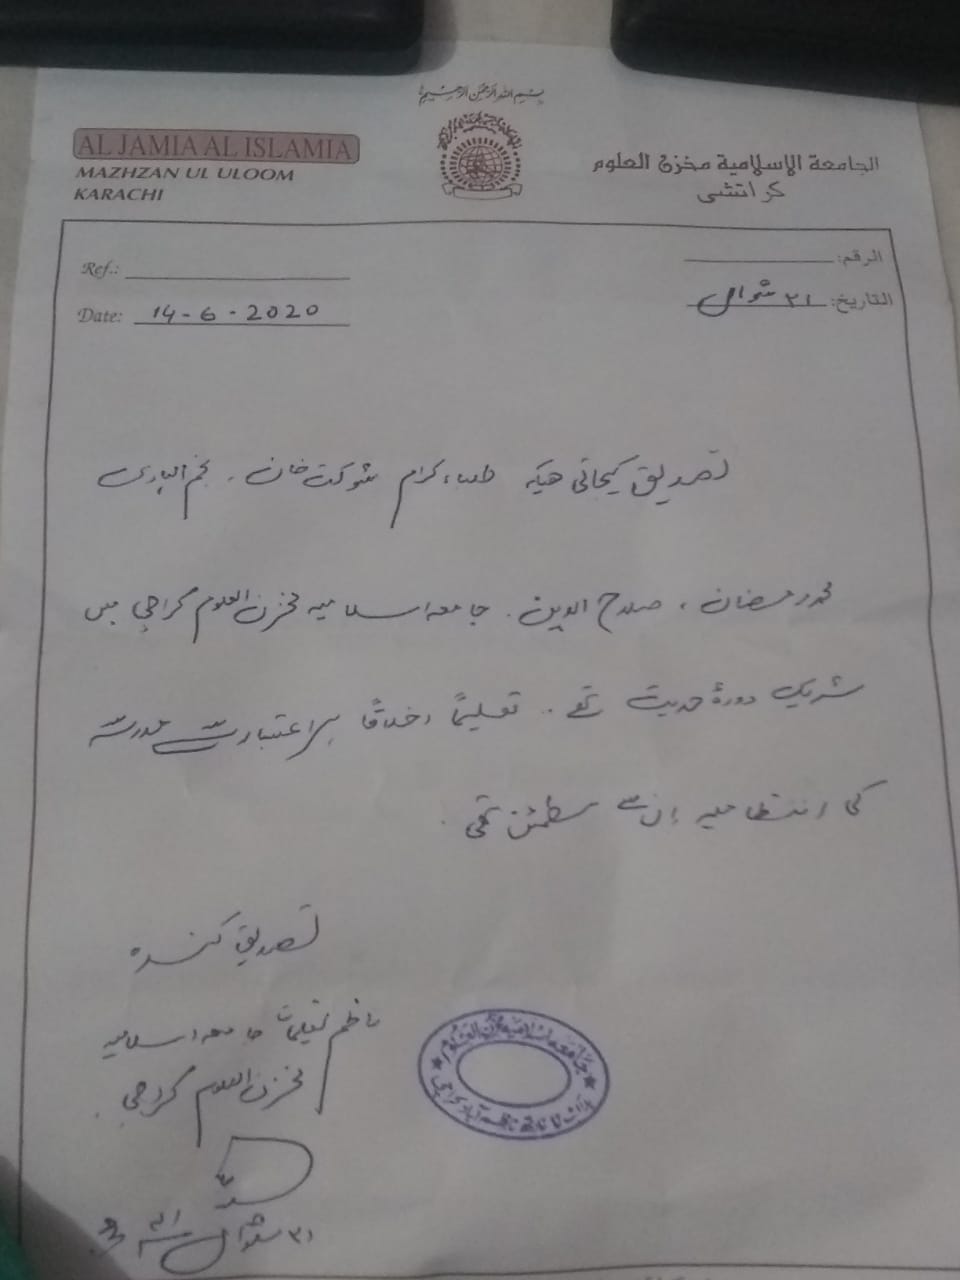 بسم الله الرحمن الرحيم
AL JAMIA AL ISLAMIA
MAZHZAN UL ULOOM
KARACHI
الجامعة الإسلامية مخزن العلوم
كراتشي
Ref.:
Date: 14-6-2020
الرقم:
التاريخ: ٢١ شوال
تصدیق کیجاتی هیکه طلباء کرام شوکت خان . نجم الباری
محمد رمضان ، صلاح الدین . جامعه اسلامیه مخزن العلوم کراچی میں
شریک دورۂ حدیث تھے . تعلیماً اخلاقاً ہر اعتبار سے مدرسہ
کی انتظامیہ اِن سے مطمئن تھی .
تصدیق کنندہ
ناظم تعلیمات جامعه اسلامیه
مخزن العلوم کراچی .
جامعه اسلامیه مخزن العلوم
٢١ شوال